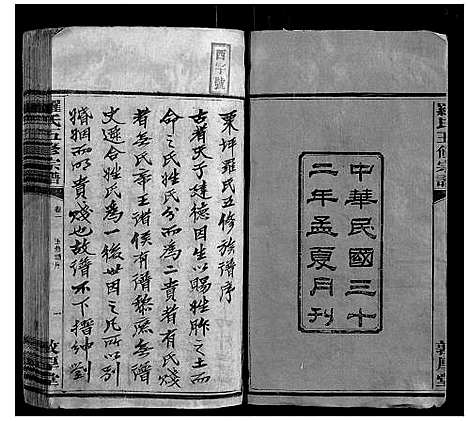 羅氏五修宗譜
中華民國三十
二年孟夏月刊
敦厚堂
酉字號
東坪羅氏五修族譜序
古者天子建德因生以賜姓胙之土而
命之氏姓氏分而為二貴者有氏賤
者無氏帝王諸侯有譜黎庶無譜
史遷合姓氏為一後世因之氏所以別
婚姻而明貴賤也故譜不下搢紳劉
羅氏五修宗譜
卷一
一
敦厚堂